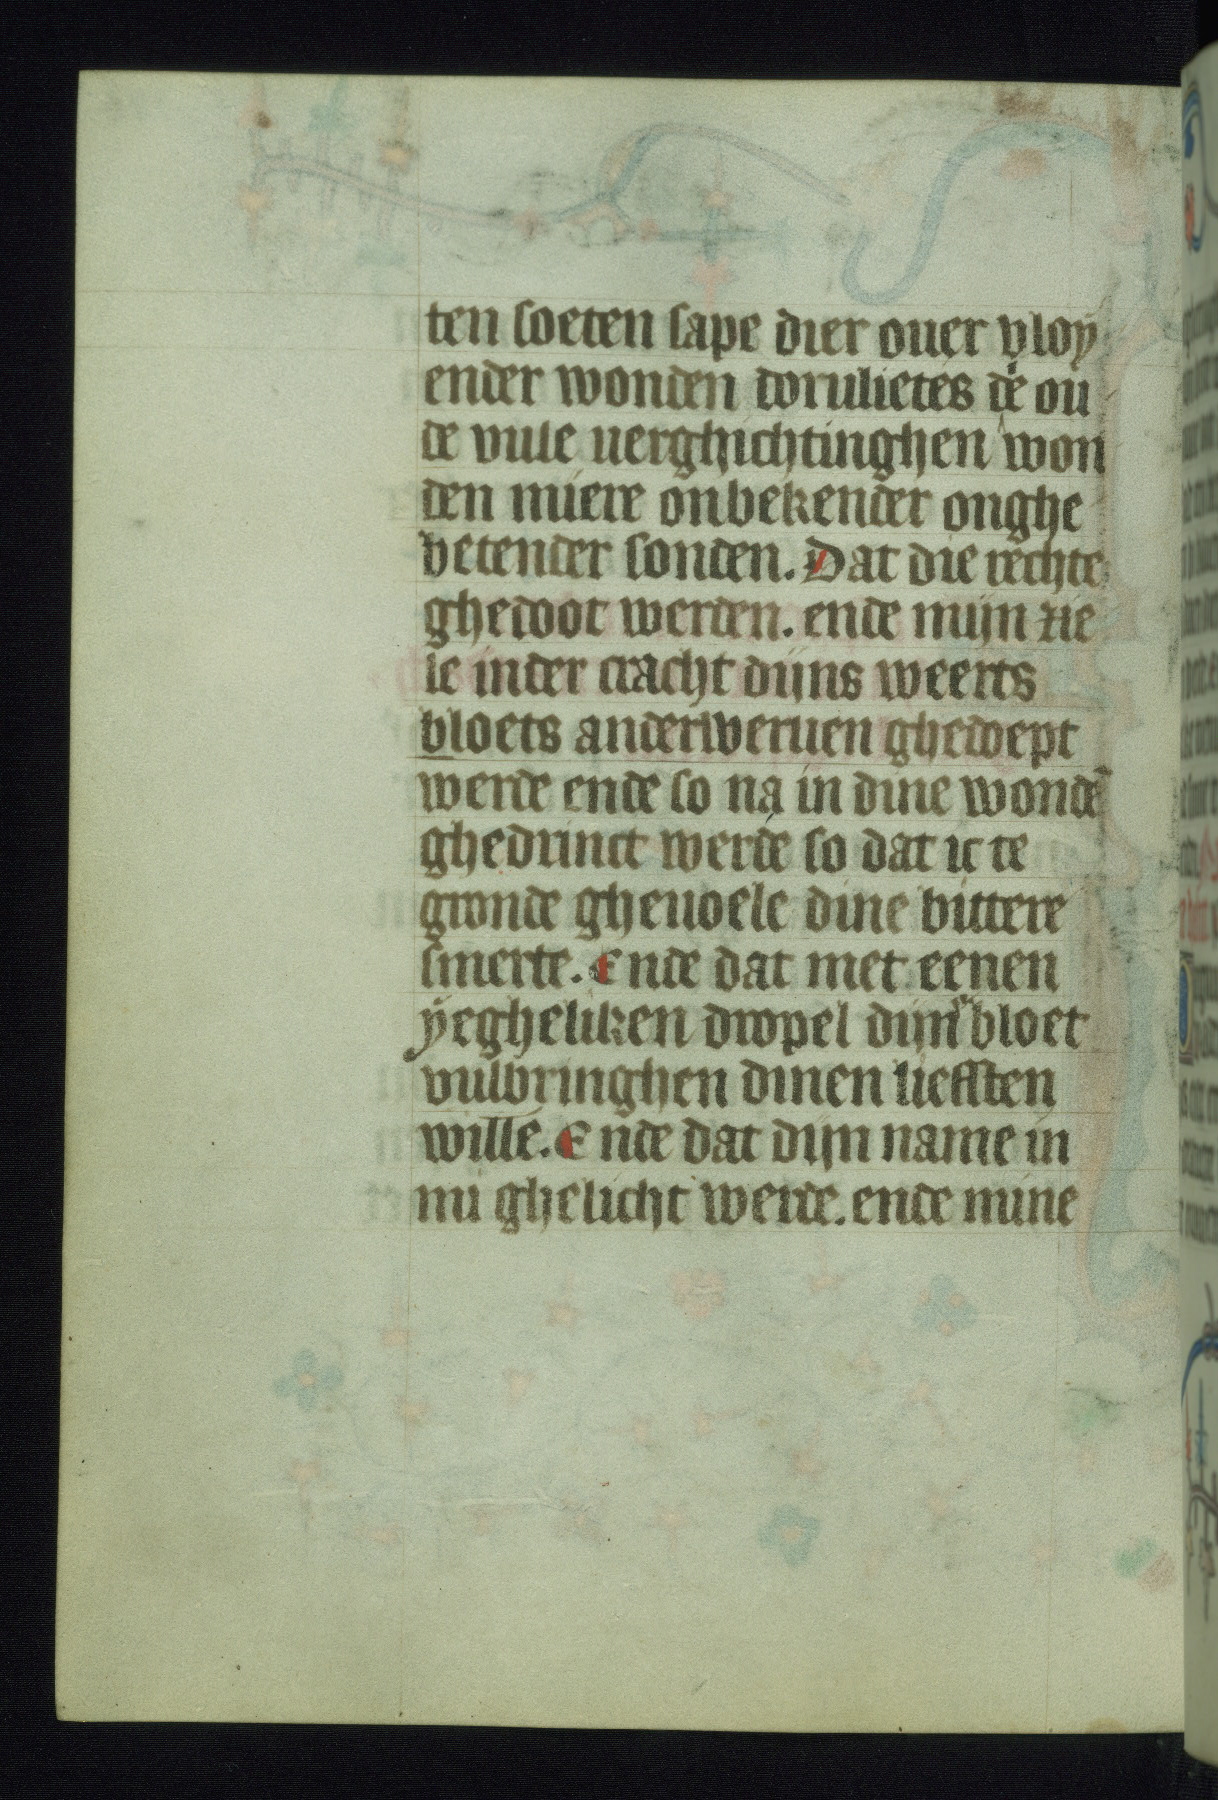 ten soeten sape dier ouer vloy
ender wonden dorulietes de ou
de vule uerghichtinghen won
den miere onbekender onghe
betender sonden. Dat die rechte
ghedoot werden. ende mijn zie
le inder cracht dijns weerts
bloets anderweruen ghedoept
werde ende so na in dine wondē
ghedrinct werde so dat ic te
gronde gheuoele dine bittere
smerte. Ende dat met eenen
yegheliken dropel dijn bloet
vulbringhen dinen liefften
wille. Ende dat dijn name in
mi ghelicht werde. ende mine